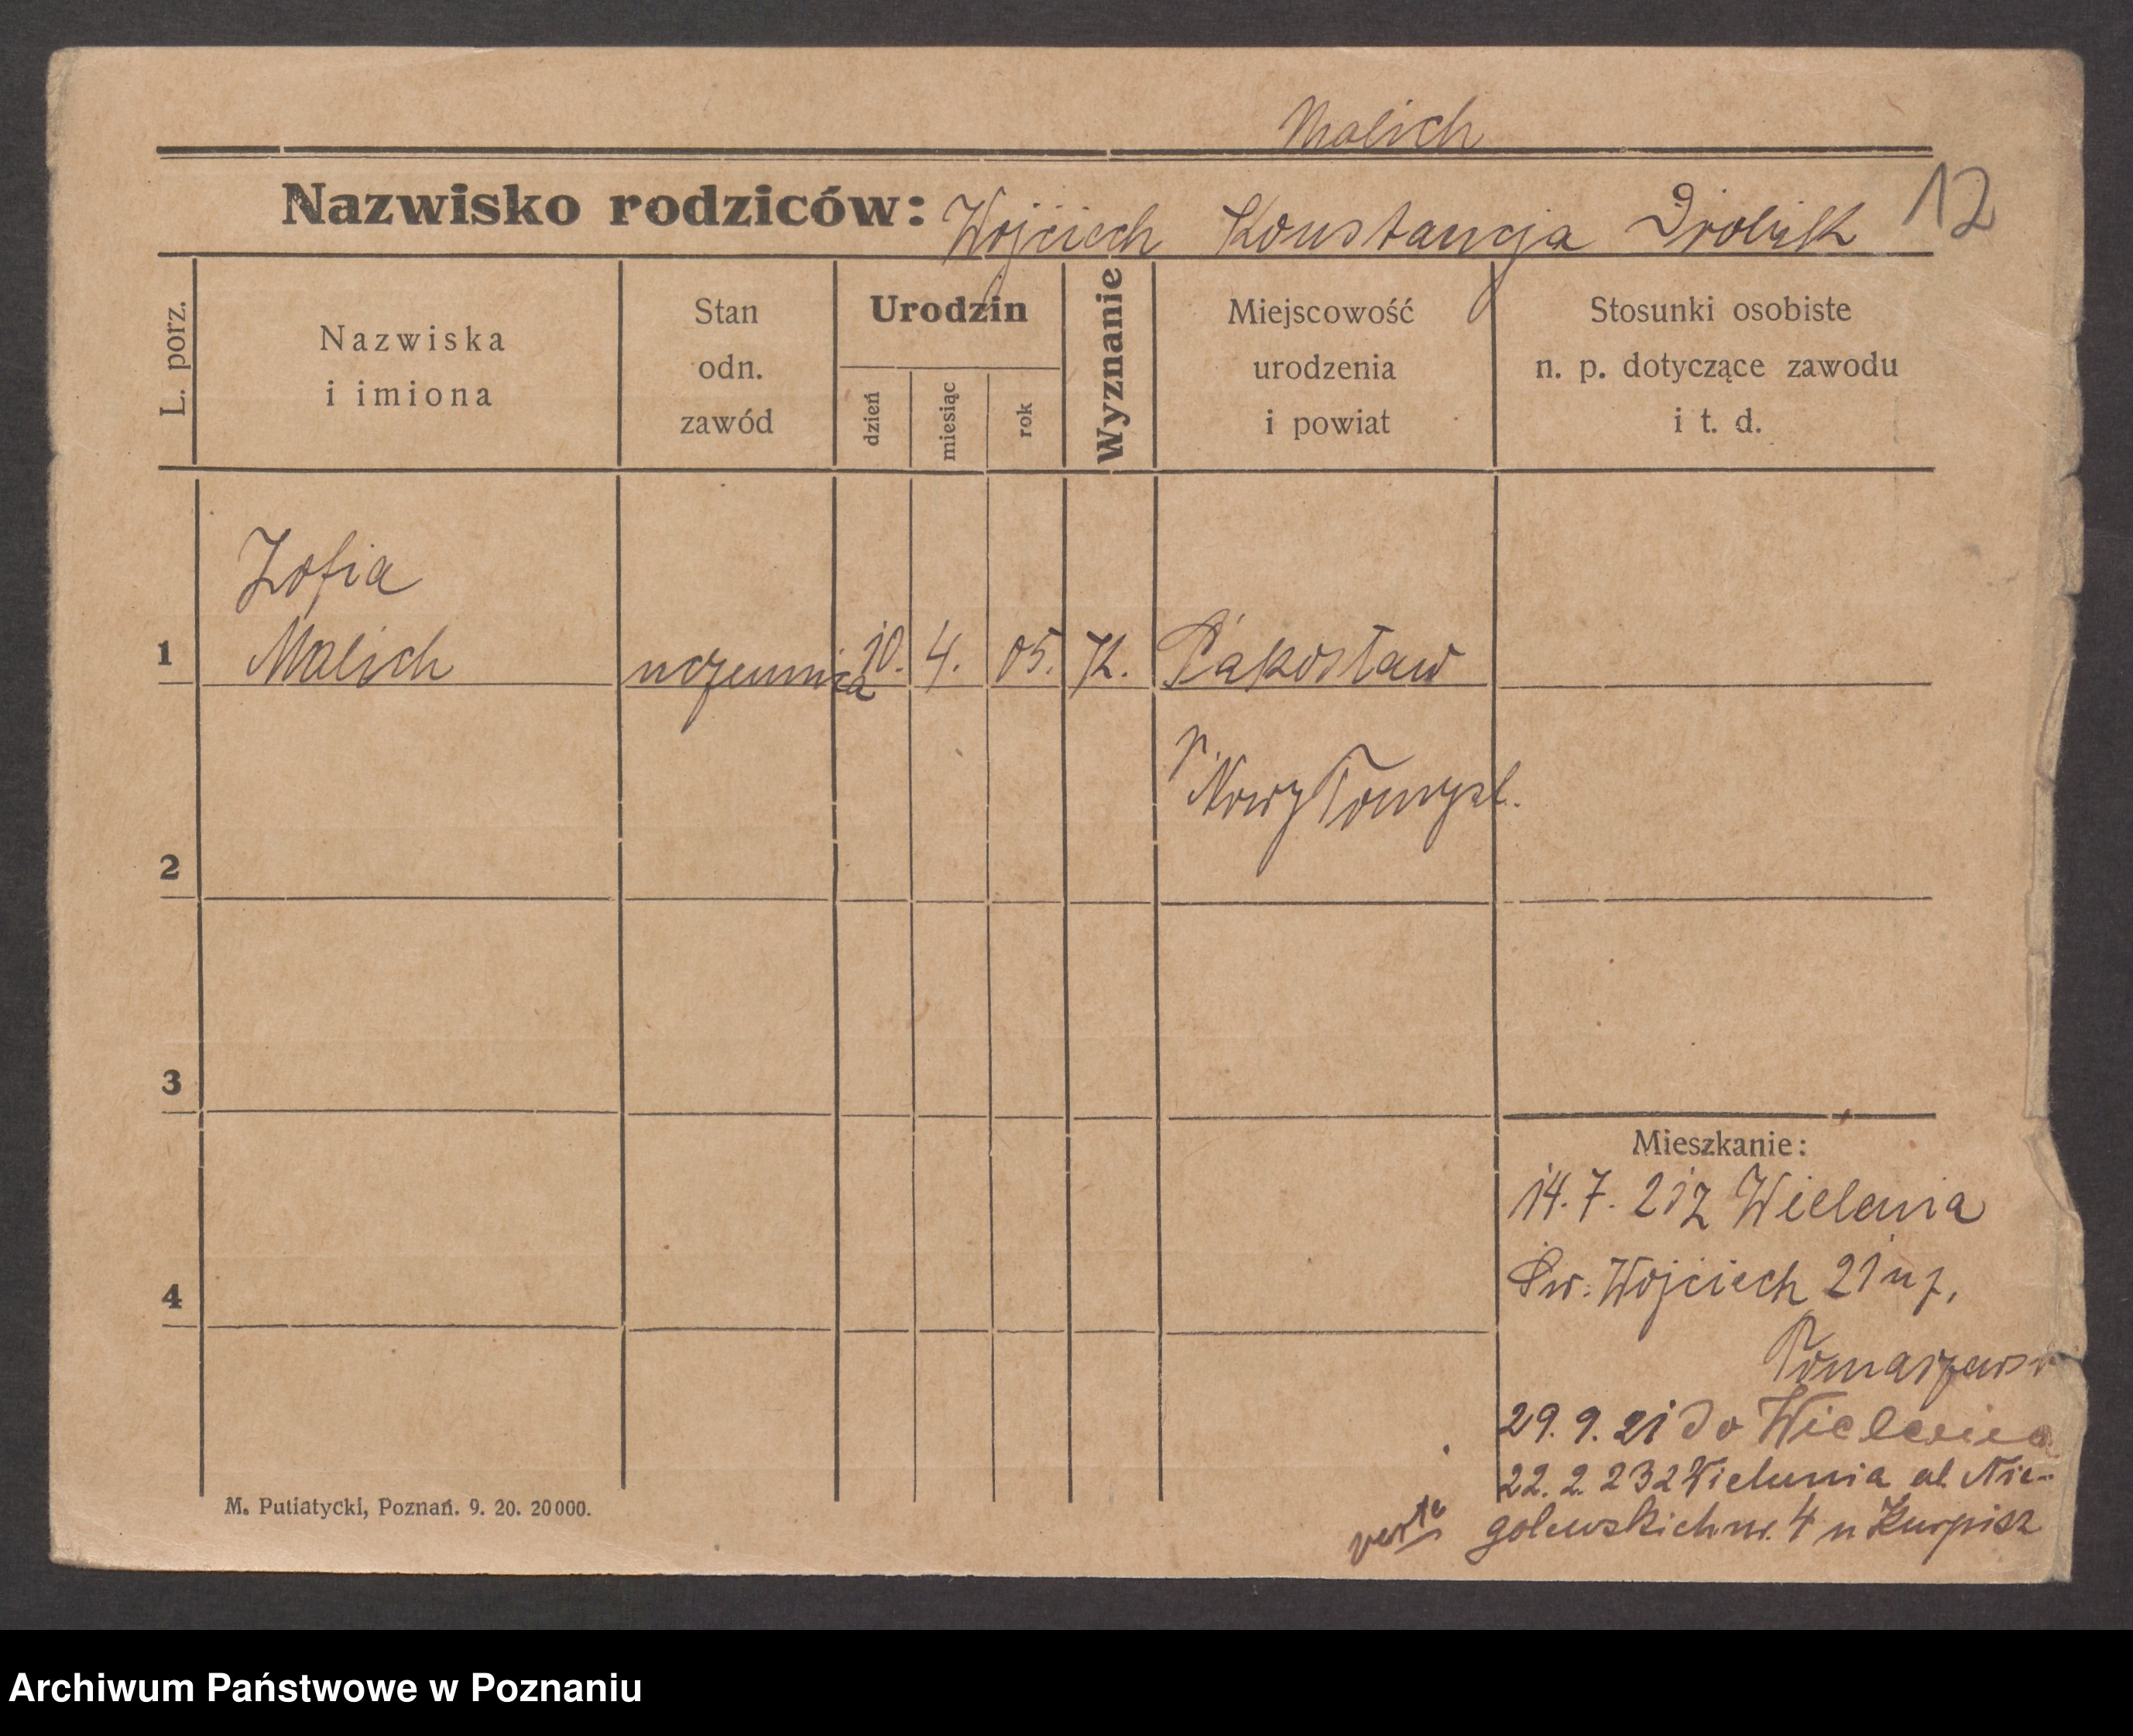 Malich
Nazwisko rodziców: Wojciech Konstancja 12
L. porz.
Nazwiska
i imiona
Stan
odn.
zawód
Urodzin
dzień
miesiąc
rok
Wyznanie
Miejscowość
urodzenia
i powiat
Stosunki osobiste
n. p. dotyczące zawodu
i t. d.
Zofia
1 Malich uczennica 10. 4. 05. K. Pakosław
p.
Nowy Tomysl.
2
3
Mieszkanie:
14.7.21 z Wielenia
4
Św. Wojciech 21 u p.
29.9.21 do Wielenia
22.2.23 z Wielunia ul. Nie-
golewskich nr. 4 u Kurpisz
verte
M. Putiatycki, Poznań. 9. 20. 20000.
Archiwum Państwowe w Poznaniu